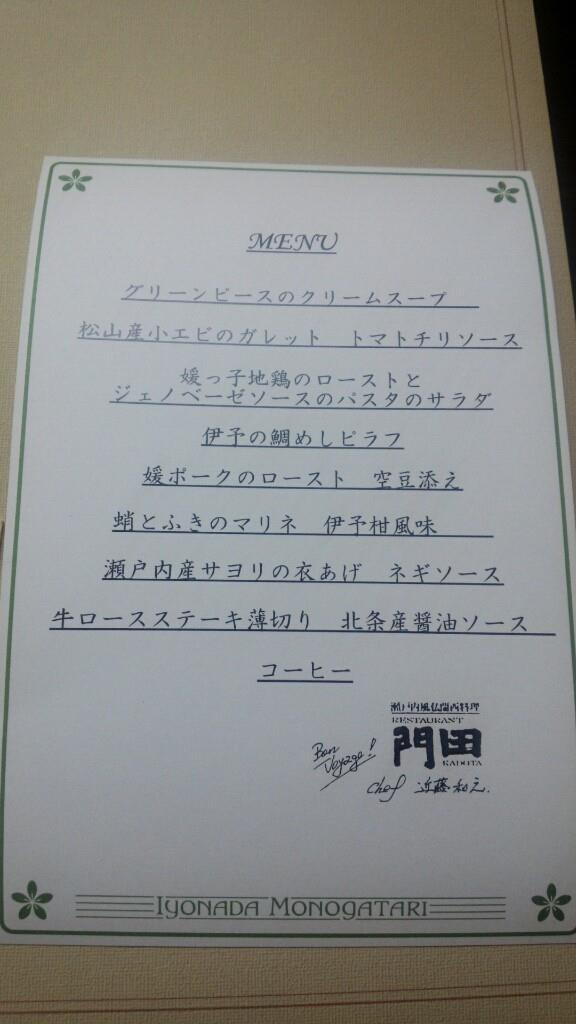 MENU
グリーンピースのクリームスープ
松山産小エビのガレット　トマトチリソース
媛っ子地鶏のローストと
ジェノベーゼソースのパスタのサラダ
伊予の鯛めしピラフ
媛ポークのロースト　空豆添え
蛸とふきのマリネ　伊予柑風味
瀬戸内産サヨリの衣あげ　ネギソース
牛ロースステーキ薄切り　北条産醤油ソース
コーヒー
RESTAURANT
門田
KADOTA
Bon
Voyage!
Chef 近藤和之.
IYONADA MONOGATARI